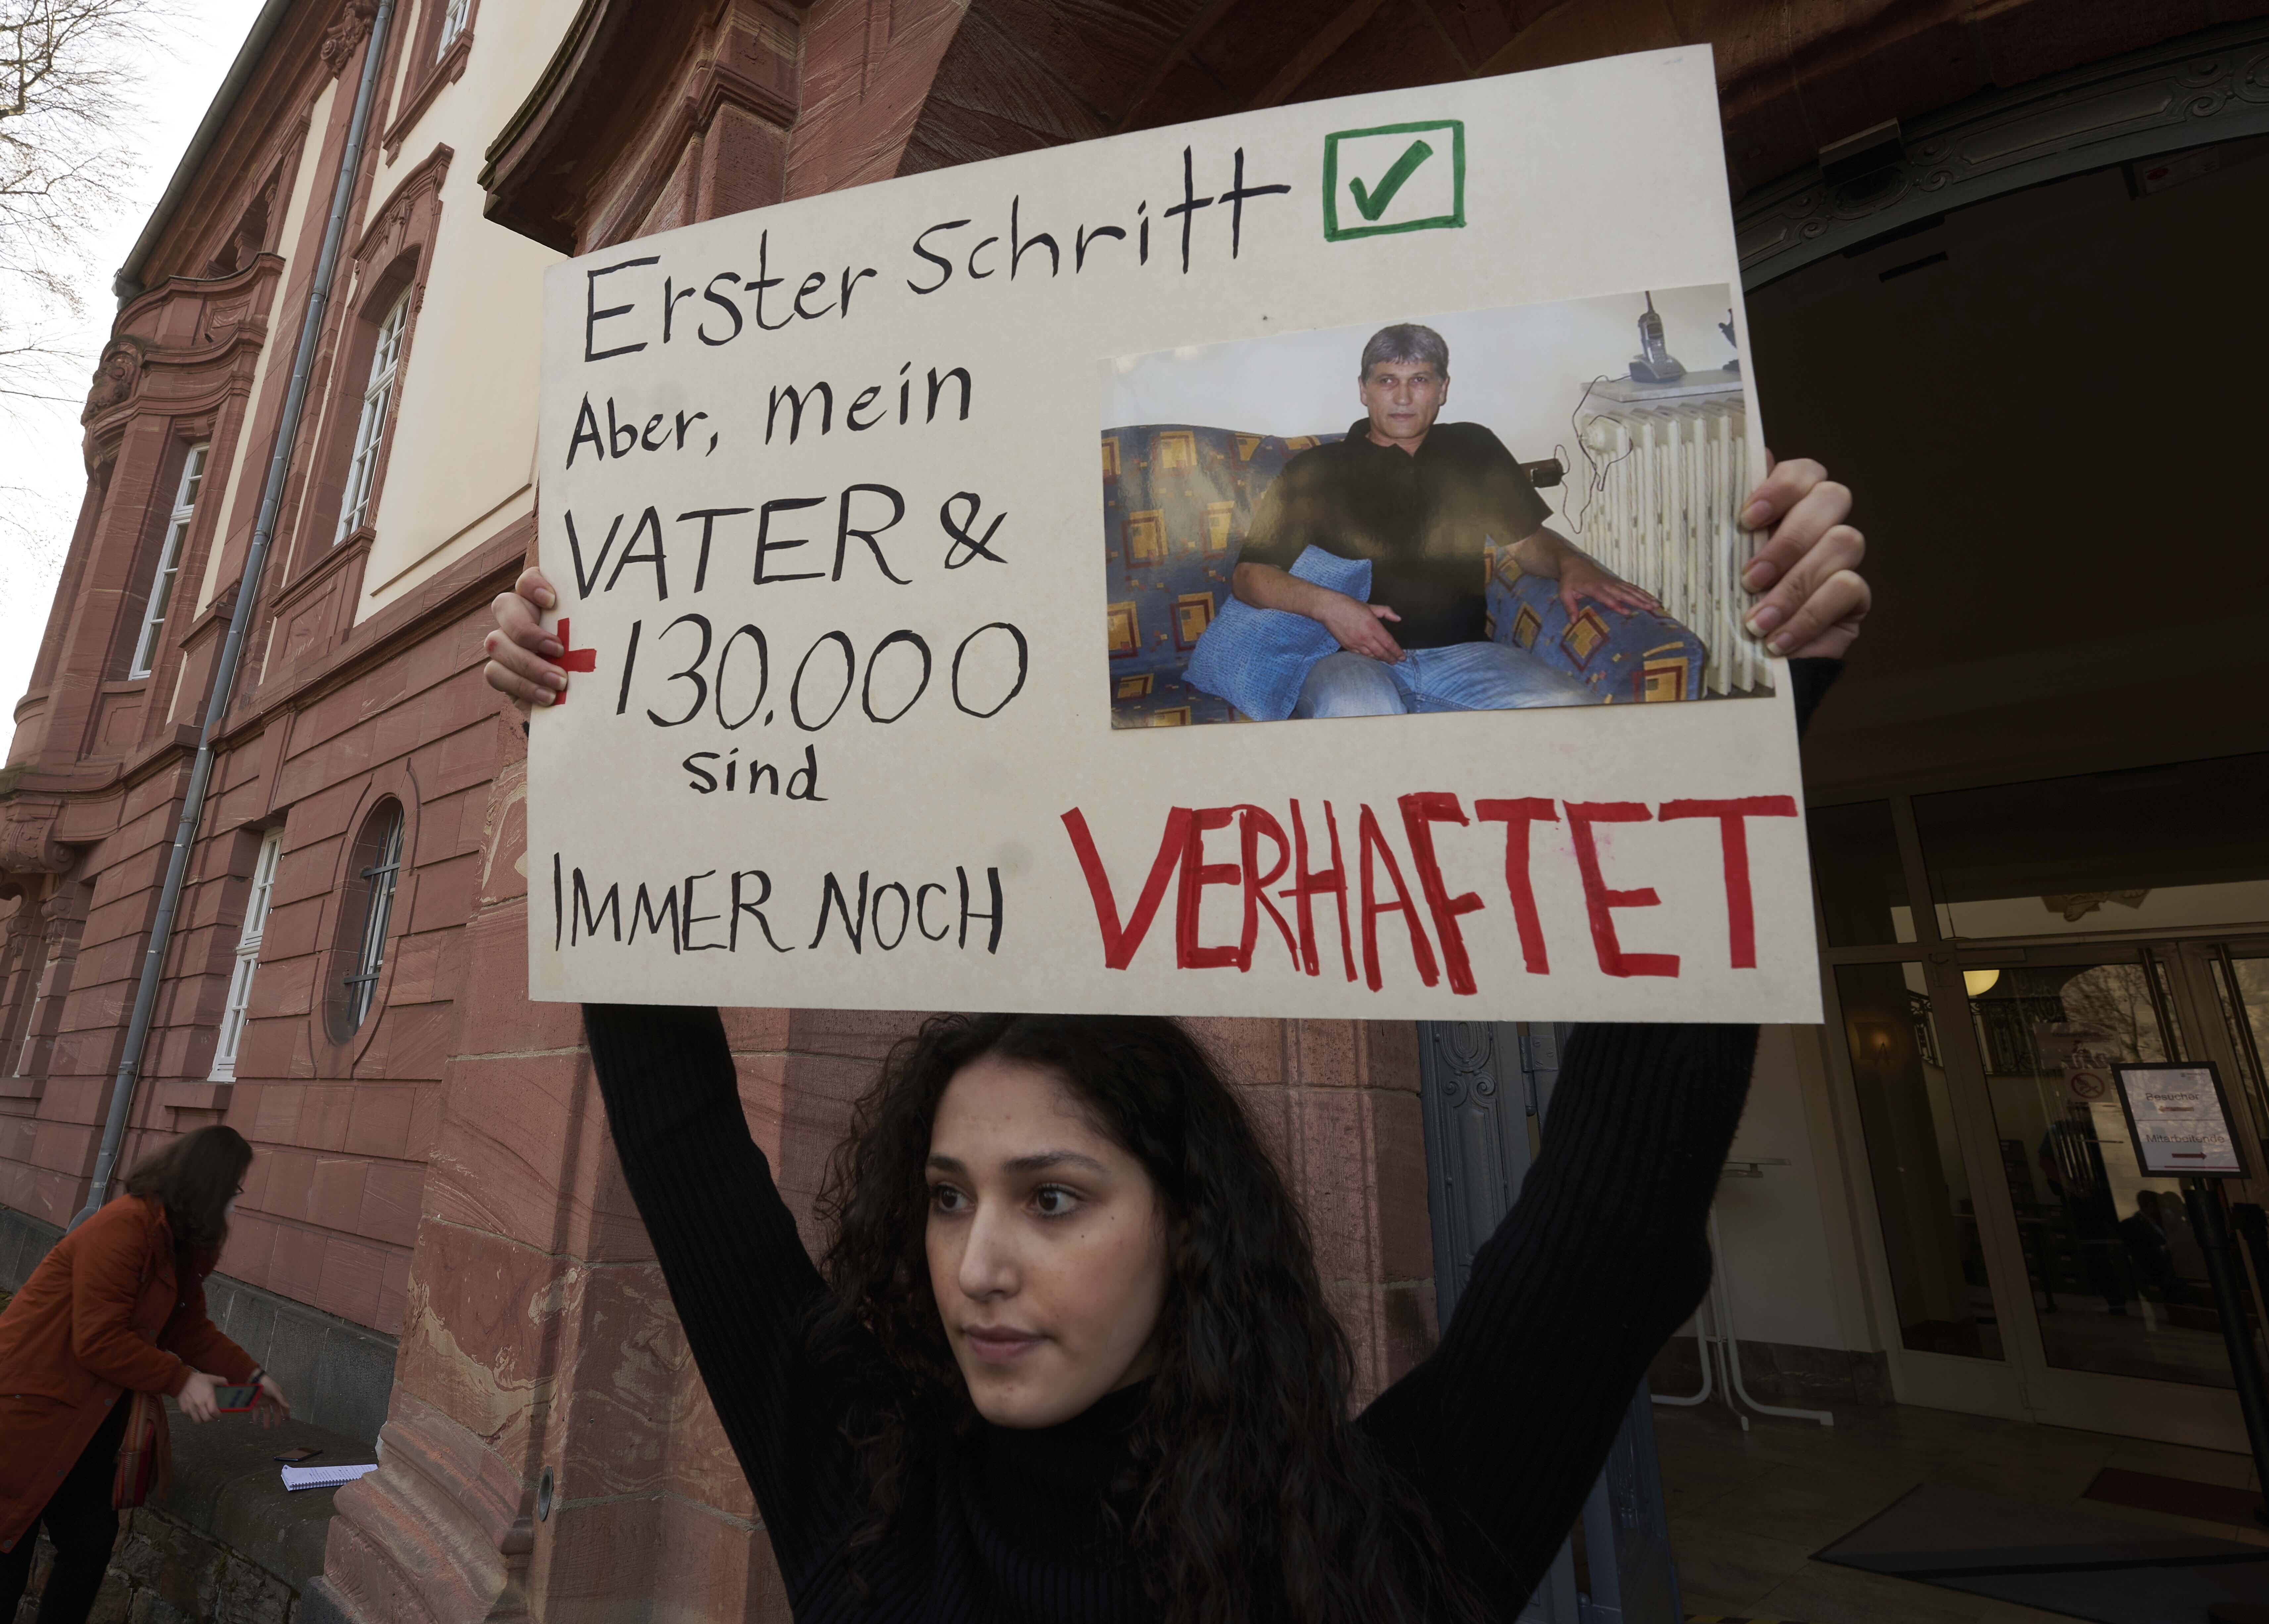 Erster Schritt
Aber, mein
VATER &
+130.000
sind
IMMER NOCH VERHAFTET
Besucher
Mitarbeitende